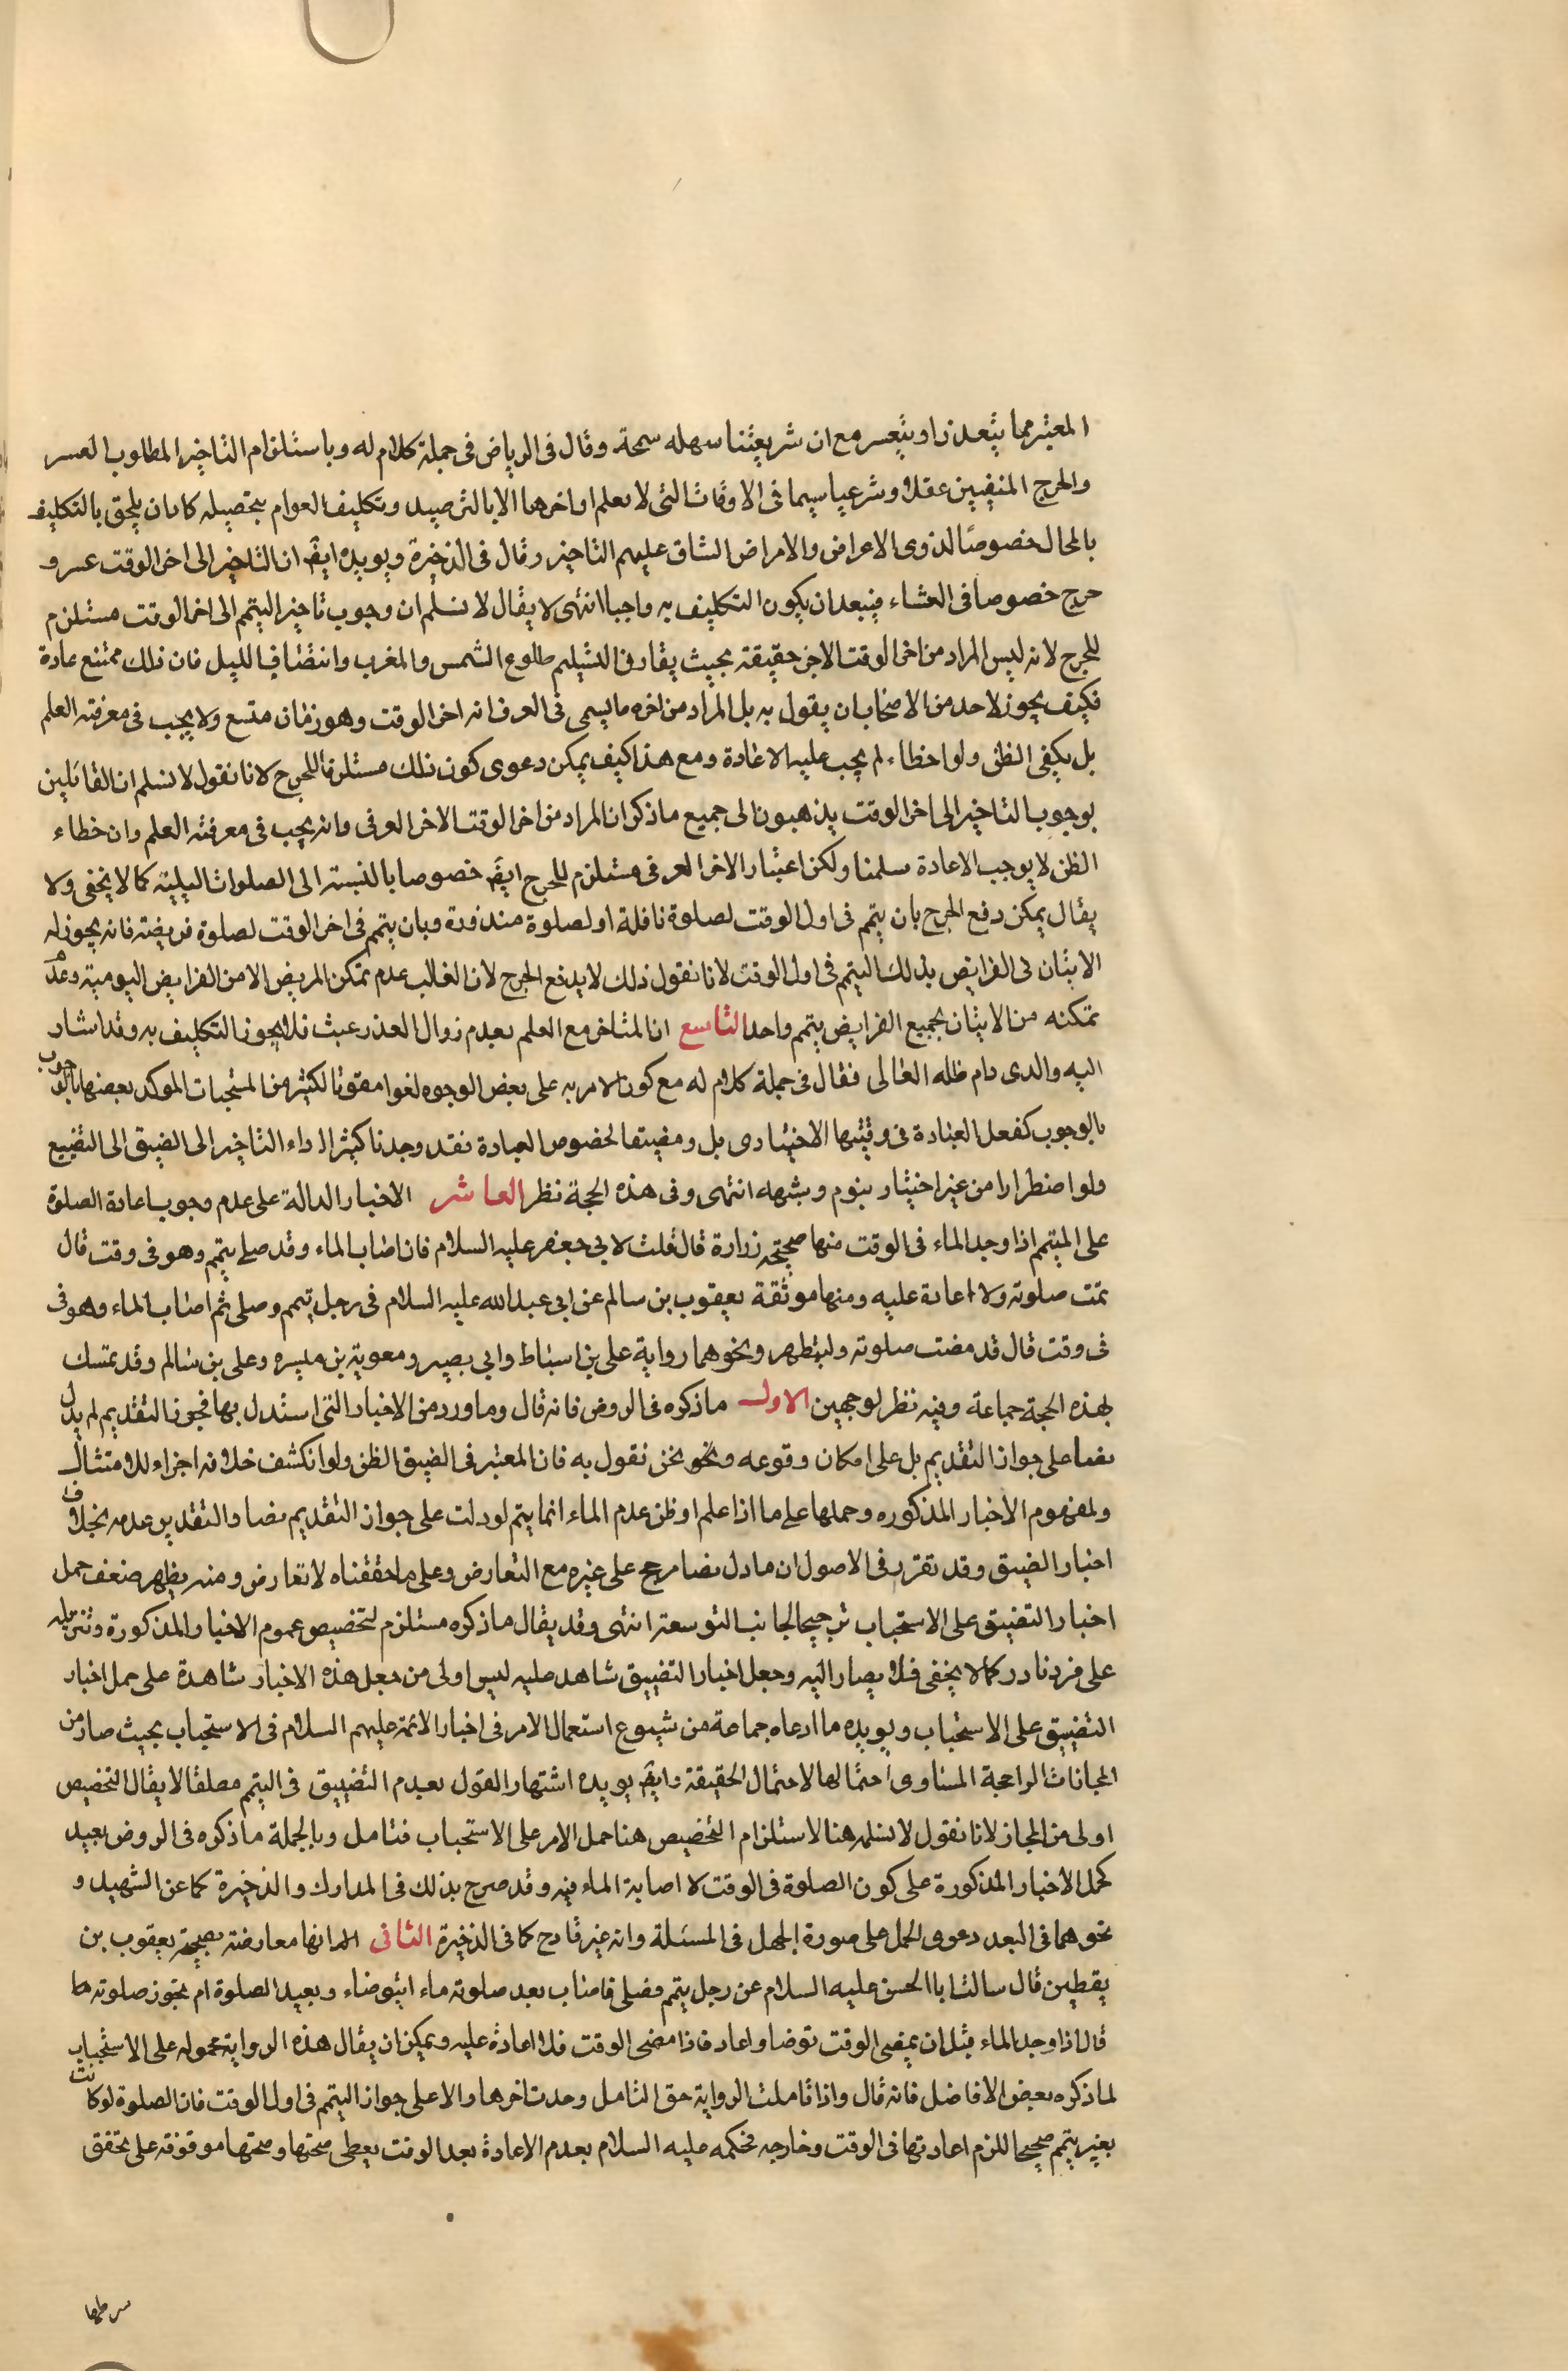 المعتبر مما يتعذر او يتعسر مع ان شريعتنا سهله سمحة وقال فى الرياض فى جملة كلام له وباستلزام التاخير المطلوب العسر
والحرج المنفيين عقلا وشرعيا سيما فى الاوقات التى لا يعلم اواخرها الا بالترصيد وتكليف العوام بتحصيله كاد ان يلحق بالتكليف
بالمحال خصوصًا لذوى الاعراض والامراض الشاق عليهم التاخير وقال فى الذخيرة ويويده ايضً ان التاخير الى اخر الوقت عسر و
حرج خصوصا فى العشاء فيبعد ان يكون التكليف به واجبا انتهى لا يقال لا نسلم ان وجوب تاخير التيمم الى اخر الوقت مستلزم
للحرج لانه ليس المراد من اخر الوقت الاخر حقيقة بحيث يقارن التسليم طلوع الشمس والمغرب وانتضاف الليل فان ذلك ممتنع عادة
فكيف يجوز لاحد من الاصحاب ان يقول به بل المراد من اخره ما يسمى فى العرف انه اخر الوقت وهو زمان متسع ولا يجب فى معرفته العلم
بل يكفى الظن ولو اخطاء لم يجب عليه الاعادة ومع هذا كيف يمكن دعوى كون ذلك مستلزما للحرج لانا نقول لا نسلم ان القائلين
بوجوب التاخير الى اخر الوقت يذهبون الى جميع ما ذكر ان المراد من اخر الوقت الاخر العرفى وانه يجب فى معرفته العلم وان خطاء
الظن لا يوجب الاعادة سلمنا ولكن اعتبار الاخر العرفى مستلزم للحرج ايضً خصوصا بالنسبة الى الصلوات الليلية كما لا يخفى ولا
يقال يمكن دفع الحرج بان يتمم فى اول الوقت لصلوة نافلة او لصلوة منذورة وبان يتمم فى اخر الوقت لصلوة فريضته فانه يجوز له
الاتيان فى الفرايض بذلك التيمم فى اول الوقت لانا نقول ذلك لا يدفع الحرج لان الغالب عدم تمكن المريض الا من الفرايض اليومية وعدم
تمكنه من الاتيان بجميع الفرايض بتمم واحد التاسع ان المتاخر مع العلم بعدم زوال العذر عبث فلا يجوز التكليف به وقد اشار
اليه والدى دام ظله العالى فقال فى جملة كلام له مع كون الامر به على بعض الوجوه لغوا مفوتا لكثير من المستحبات الموكد بعضها بالوجوب
بالوجوب كفعل العبادة فى وقتها الاختيارى بل ومفيتها لخصوص العبادة فقد وجدنا كثيرا اداء التاخير الى الضيق الى التضيع
ولو اضطرارا من غير اختيار بنوم وشبهه انتهى وفى هذه الحجة نظر العاشر الاخبار الدالة على عدم وجوب اعادة الصلوة
على المتيمم اذا وجد الماء فى الوقت منها صحيحة زرارة قال قلت لابى جعفر عليه السلام فان اصاب الماء وقد صلى بتيمم وهو فى وقت قال
تمت صلوته ولا اعادة عليه ومنها موثقة يعقوب بن سالم عن ابى عبد الله عليه السلام فى رجل تيمم وصلى ثم اصاب الماء وهو فى
فى وقت قال قد مضت صلوته وليتطهر ونحوهما رواية على بن اسباط وابى بصير ومعوية بن ميسره وعلى بن سالم وقد تمسك
بهذه الحجة جماعة وفيه نظر لوجهين الاول ما ذكره فى الروض فانه قال وما ورد من الاخبار التى استدل بها مجوز التقديم لم يدل
نصا على جواز التقديم بل على امكان وقوعه ونحو نحن نقول به فان المعتبر فى الضيق الظن ولو انكشف خلافه اجزاء للامتثال
ولمفهوم الاخبار المذكوره وحملها على ما اذا علم او ظن عدم الماء انما يتم لو دلت على جواز التقديم نصا والتقدير عدمه بخلاف
اخبار الضيق وقد تقرر فى الاصول ان ما دل نصا مرجح على غيره مع التعارض وعلى ما حققناه لا تعارض ومنه يظهر ضعف حمل
اخبار التضيق على الاستحباب ترجيحا لجانب التوسعة انتهى وقد يقال ما ذكره مستلزم لتخصيص عموم الاخبار المذكورة وتنزيله
على فرد نادر كما لا يخفى فلا يصار اليه وجعل اخبار التضييق شاهد عليه ليس اولى من جعل هذه الاخبار شاهدة على حمل اخبار
التضيق على الاستحباب ويويده ما ادعاه جماعة من شيوع استعمال الامر فى اخبار الائمة عليهم السلام فى الاستحباب بحيث صار من
المجازات الراجحة المساوى احتمالها لاحتمال الحقيقة وايضً يويده اشتهار القول بعدم التضييق فى التيمم مطلقا لا يقال التخصيص
اولى من المجاز لانا نقول لا نسلمه هنا لاستلزام التخصيص هنا حمل الامر على الاستحباب فتامل وبالجملة ما ذكره فى الروض بعيد
كحمل الاخبار المذكورة على كون الصلوة فى الوقت لا اصابة الماء فيه وقد صرح بذلك فى المدارك والذخيرة كما عن الشهيد و
نحوهما فى البعد دعوى الحمل على صورة الجهل فى المسئلة وانه غير قادح كما فى الذخيرة الثانى انها معارضة بصحيحة يعقوب بن
يقطين قال سالت ابا الحسن عليه السلام عن رجل يتمم فصلى فاصاب بعد صلوته ماء ايتوضاء ويعيد الصلوة ام تجوز صلوته ها
قال اذا وجد الماء قبل ان يمضى الوقت توضا واعاد فاذا مضى الوقت فلا اعادة عليه ويمكن ان يقال هذه الرواية محموله على الاستحباب
لما ذكره بعض الافاضل فانه قال واذا تاملت الرواية حق التامل وجدت اخرها دالا على جواز التيمم فى اول الوقت فان الصلوة لو كانت
بغير تيمم صحيحا للزم اعادتها فى الوقت وخارجه فحكمه عليه السلام بعدم الاعادة بعد الوقت يعطى صحتها وصحتها موقوفة على تحقق